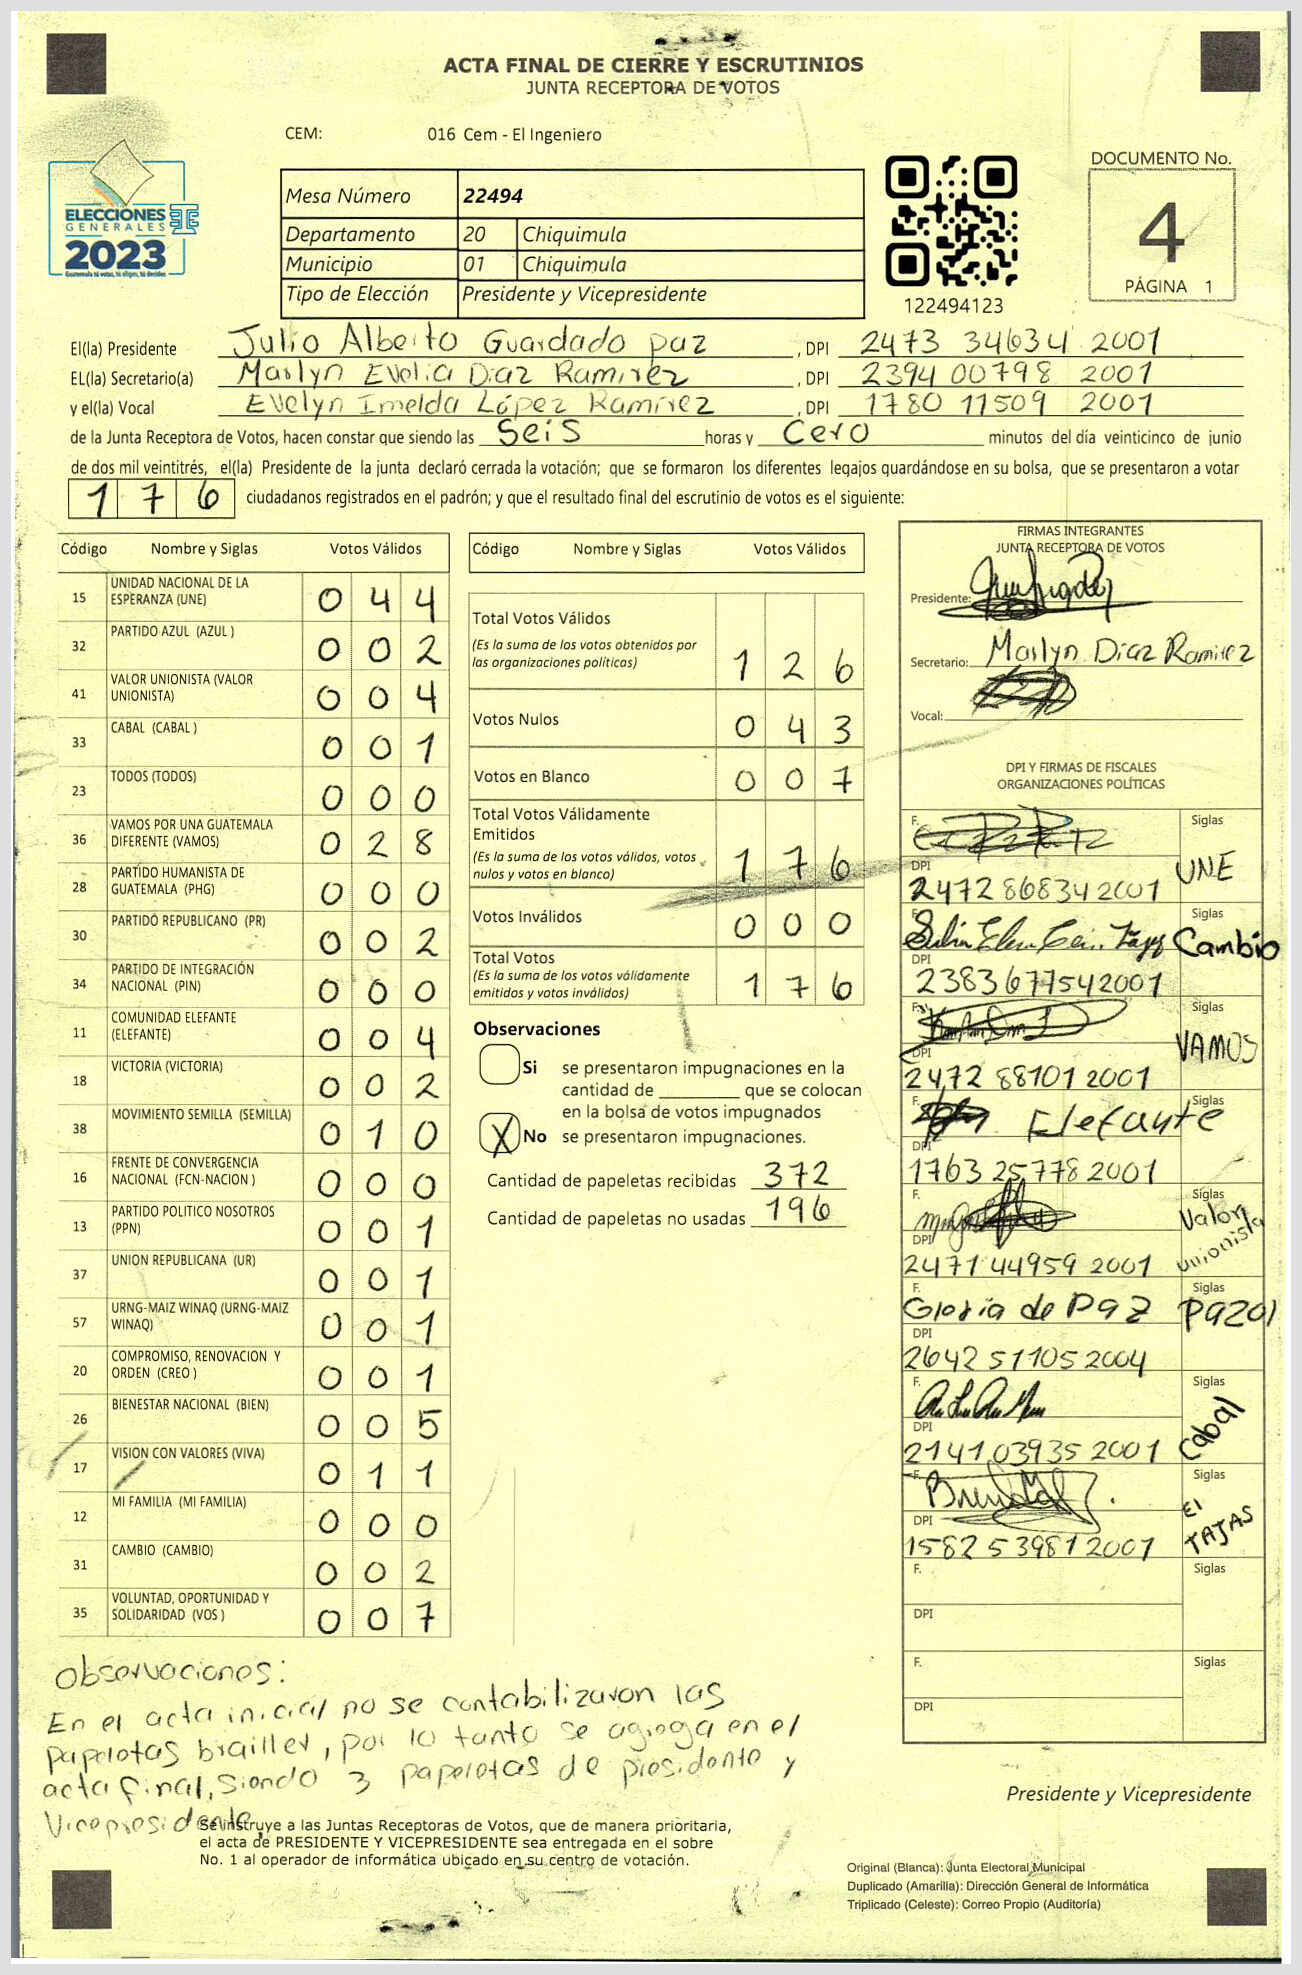 ACTA FINAL DE CIERRE Y ESCRUTINIOS
JUNTA RECEPTORA DE VOTOS
CEM: 016 Cem - El Ingeniero
ELECCIONES
GENERALES
2023
Mesa Número 22494
Departamento 20 Chiquimula
Municipio 01 Chiquimula
Tipo de Elección Presidente y Vicepresidente
122494123
DOCUMENTO No.
4
PÁGINA 1
El(la) Presidente Julio Alberto Guardado paz , DPI 2473 34634 2001
EL(la) Secretario(a) Marlyn Evelia Diaz Ramirez , DPI 2394 00798 2001
y el(la) Vocal Evelyn Imelda López Ramírez , DPI 1780 11509 2001
de la Junta Receptora de Votos, hacen constar que siendo las Seis horas y Cero minutos del día veinticinco de junio
de dos mil veintitrés, el(la) Presidente de la junta declaró cerrada la votación; que se formaron los diferentes legajos guardándose en su bolsa, que se presentaron a votar
176 ciudadanos registrados en el padrón; y que el resultado final del escrutinio de votos es el siguiente:
Código Nombre y Siglas Votos Válidos
15 UNIDAD NACIONAL DE LA ESPERANZA (UNE) 044
32 PARTIDO AZUL (AZUL ) 002
41 VALOR UNIONISTA (VALOR UNIONISTA) 004
33 CABAL (CABAL ) 001
23 TODOS (TODOS) 000
36 VAMOS POR UNA GUATEMALA DIFERENTE (VAMOS) 028
28 PARTIDO HUMANISTA DE GUATEMALA (PHG) 000
30 PARTIDO REPUBLICANO (PR) 002
34 PARTIDO DE INTEGRACIÓN NACIONAL (PIN) 000
11 COMUNIDAD ELEFANTE (ELEFANTE) 004
18 VICTORIA (VICTORIA) 002
38 MOVIMIENTO SEMILLA (SEMILLA) 010
16 FRENTE DE CONVERGENCIA NACIONAL (FCN-NACION ) 000
13 PARTIDO POLITICO NOSOTROS (PPN) 001
37 UNION REPUBLICANA (UR) 001
57 URNG-MAIZ WINAQ (URNG-MAIZ WINAQ) 001
20 COMPROMISO, RENOVACION Y ORDEN (CREO ) 001
26 BIENESTAR NACIONAL (BIEN) 005
17 VISION CON VALORES (VIVA) 011
12 MI FAMILIA (MI FAMILIA) 000
31 CAMBIO (CAMBIO) 002
35 VOLUNTAD, OPORTUNIDAD Y SOLIDARIDAD (VOS ) 007
Código Nombre y Siglas Votos Válidos
Total Votos Válidos 126
(Es la suma de los votos obtenidos por
las organizaciones políticas)
Votos Nulos 043
Votos en Blanco 007
Total Votos Válidamente
Emitidos 176
(Es la suma de los votos válidos, votos
nulos y votos en blanco)
Votos Inválidos 000
Total Votos 176
(Es la suma de los votos válidamente
emitidos y votos inválidos)
Observaciones
Si se presentaron impugnaciones en la
cantidad de ________ que se colocan
en la bolsa de votos impugnados
X No se presentaron impugnaciones.
Cantidad de papeletas recibidas 372
Cantidad de papeletas no usadas 196
FIRMAS INTEGRANTES
JUNTA RECEPTORA DE VOTOS
Presidente:
Secretario: Marlyn Diaz Ramirez
Vocal:
DPI Y FIRMAS DE FISCALES
ORGANIZACIONES POLÍTICAS
F. Siglas UNE
DPI 2472 86834 2001
F. Siglas Cambio
DPI 2383 67754 2001
F. Siglas VAMOS
DPI 2472 88101 2001
F. Siglas Elefante
DPI 1763 25778 2001
F. Siglas Valor unionista
DPI 2471 44959 2001
F. Gloria de Paz Siglas
DPI 2642 51105 2004
F. Siglas Cabal
DPI 2141 03935 2001
F. Siglas
DPI 1582 53981 2001
F. Siglas
DPI
F. Siglas
DPI
Observaciones:
En el acta inicial no se contabilizaron las
papeletas brailler, por lo tanto se agrega en el
acta final, siendo 3 papeletas de presidente y
Vicepresidente.
Presidente y Vicepresidente
Se instruye a las Juntas Receptoras de Votos, que de manera prioritaria,
el acta de PRESIDENTE Y VICEPRESIDENTE sea entregada en el sobre
No. 1 al operador de informática ubicado en su centro de votación.
Original (Blanca): Junta Electoral Municipal
Duplicado (Amarilla): Dirección General de Informática
Triplicado (Celeste): Correo Propio (Auditoría)